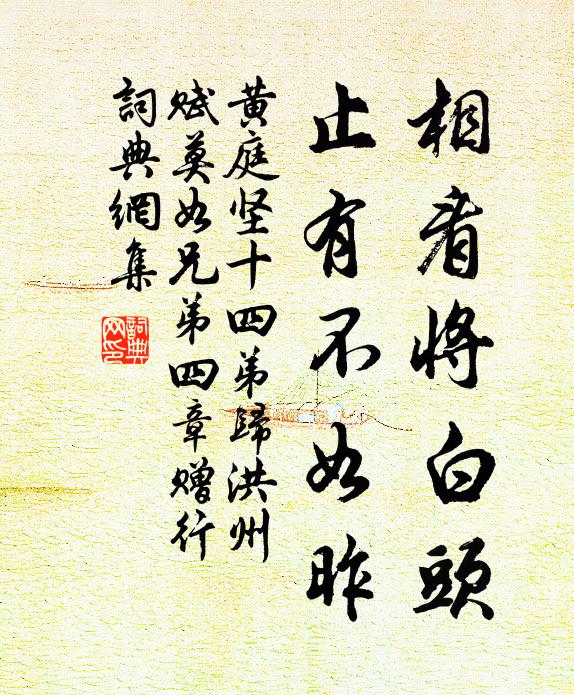 相看将白頭
止有不如昨
黄庭坚十四弟歸洪州
赋莫如兄弟四章赠行
詞典網集
詞典网印